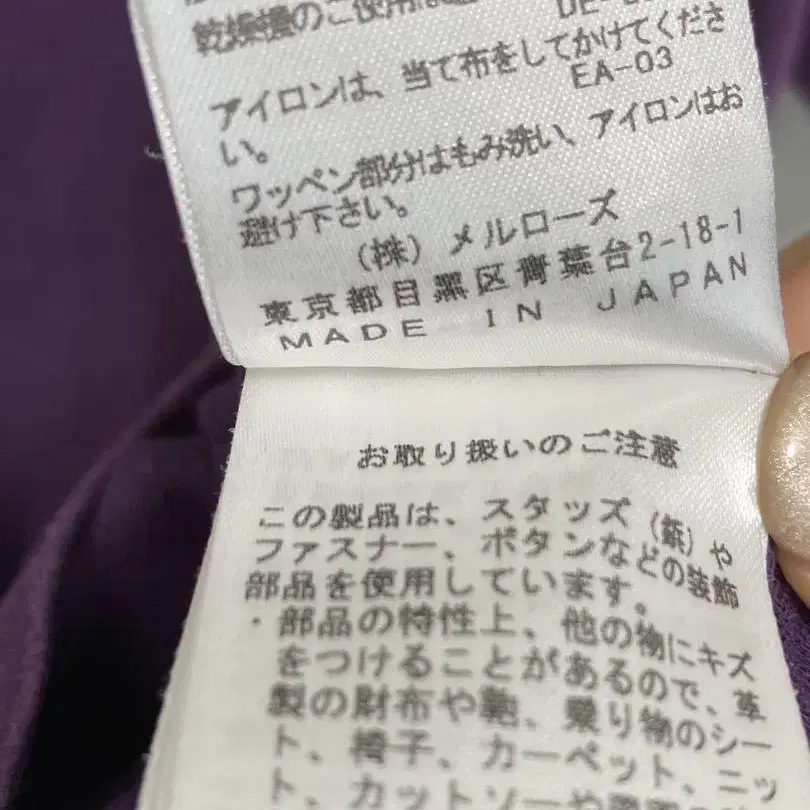 乾燥機のご使用は
DE-
アイロンは、当て布をしてかけてくださ
い。
EA-03
ワッペン部分はもみ洗い、アイロンはお
避け下さい。
（株）メルローズ
東京都目黒区青葉台2-18-1
MADE IN JAPAN
お取り扱いのご注意
この製品は、スタッズ（鋲）や
ファスナー、ボタンなどの装飾
部品を使用しています。
・部品の特性上、他の物にキズ
をつけることがあるので、革
製の財布や鞄、乗り物のシー
ト、椅子、カーペット、ニッ
ト、カットソーや